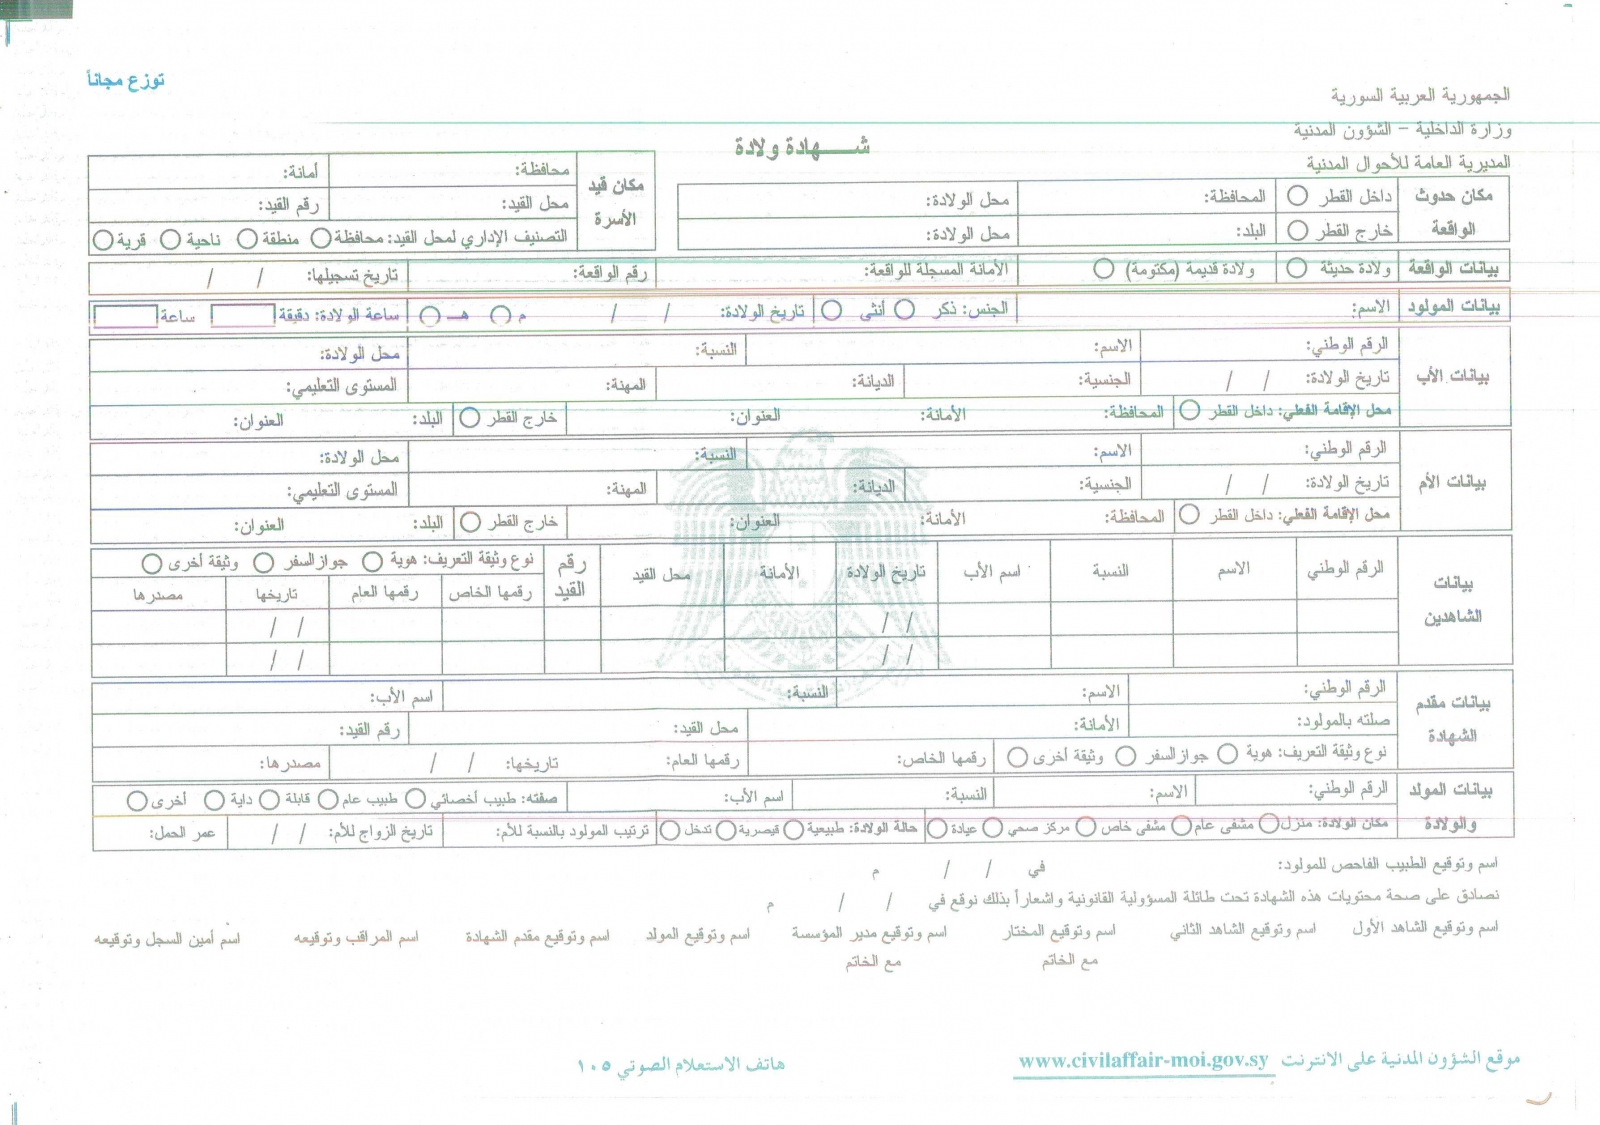 توزع مجاناً
الجمهورية العربية السورية
وزارة الداخلية – الشؤون المدنية
المديرية العامة للأحوال المدنية
شـــهادة ولادة
مكان حدوث الواقعة
داخل القطر المحافظة: محل الولادة:
خارج القطر البلد: محل الولادة:
مكان قيد الأسرة
محافظة: أمانة:
محل القيد: رقم القيد:
التصنيف الإداري لمحل القيد: محافظة منطقة ناحية قرية
بيانات الواقعة ولادة حديثة ولادة قديمة (مكتومة) الأمانة المسجلة للواقعة: رقم الواقعة: تاريخ تسجيلها: / /
بيانات المولود الاسم: الجنس: ذكر أنثى تاريخ الولادة: / / م هـ ساعة الولادة: دقيقة ساعة
بيانات الأب
الرقم الوطني: الاسم: النسبة: محل الولادة:
تاريخ الولادة: / / الجنسية: الديانة: المهنة: المستوى التعليمي:
محل الإقامة الفعلي: داخل القطر المحافظة: الأمانة: العنوان: خارج القطر البلد: العنوان:
بيانات الأم
الرقم الوطني: الاسم: النسبة: محل الولادة:
تاريخ الولادة: / / الجنسية: الديانة: المهنة: المستوى التعليمي:
محل الإقامة الفعلي: داخل القطر المحافظة: الأمانة: العنوان: خارج القطر البلد: العنوان:
بيانات الشاهدين
الرقم الوطني الاسم النسبة اسم الأب تاريخ الولادة الأمانة محل القيد رقم القيد نوع وثيقة التعريف: هوية جواز السفر وثيقة أخرى
رقمها الخاص رقمها العام تاريخها مصدرها
/ / / /
/ / / /
بيانات مقدم الشهادة
الرقم الوطني: الاسم: النسبة: اسم الأب:
صلته بالمولود: الأمانة: محل القيد: رقم القيد:
نوع وثيقة التعريف: هوية جواز السفر وثيقة أخرى رقمها الخاص: رقمها العام: تاريخها: / / مصدرها:
بيانات المولد والولادة
الرقم الوطني: الاسم: النسبة: اسم الأب: صفته: طبيب أخصائي طبيب عام قابلة داية أخرى
مكان الولادة: منزل مشفى عام مشفى خاص مركز صحي عيادة حالة الولادة: طبيعية قيصرية تدخل ترتيب المولود بالنسبة للأم: تاريخ الزواج للأم: / / عمر الحمل:
اسم وتوقيع الطبيب الفاحص للمولود: في / / م
نصادق على صحة محتويات هذه الشهادة تحت طائلة المسؤولية القانونية واشعاراً بذلك نوقع في / / م
اسم وتوقيع الشاهد الأول اسم وتوقيع الشاهد الثاني اسم وتوقيع المختار اسم وتوقيع مدير المؤسسة اسم وتوقيع المولد اسم وتوقيع مقدم الشهادة اسم المراقب وتوقيعه اسم أمين السجل وتوقيعه
مع الخاتم مع الخاتم
موقع الشؤون المدنية على الانترنت www.civilaffair-moi.gov.sy هاتف الاستعلام الصوتي ١٠٥